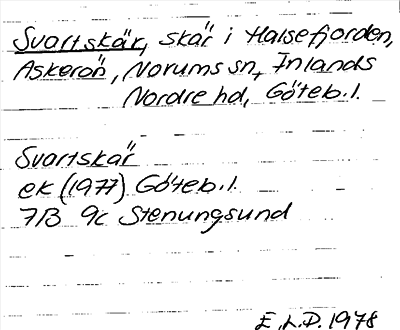 Svartskär, skär i Halsefjorden,
Askerön, Norums sn, Inlands
Nordre hd, Göteb. l.
Svartskär
ek (1977) Göteb. l.
7B 9c Stenungsund
E.L.D. 1978